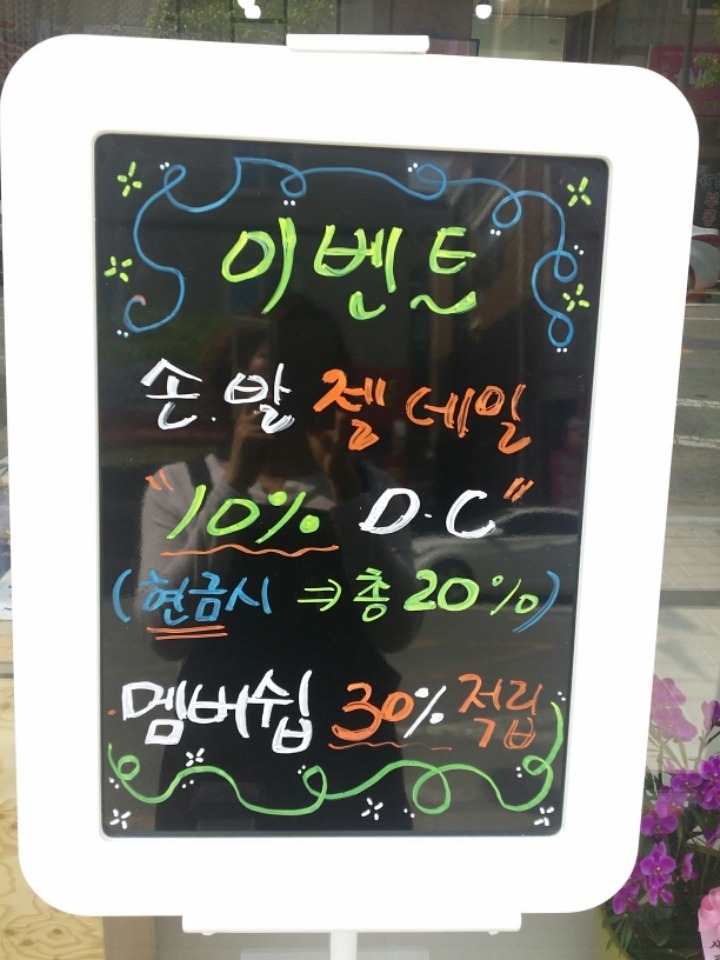 이벤트
손.발 젤 네일
"10% D.C"
(현금시 ⇒ 총 20%)
멤버쉽 30% 적립